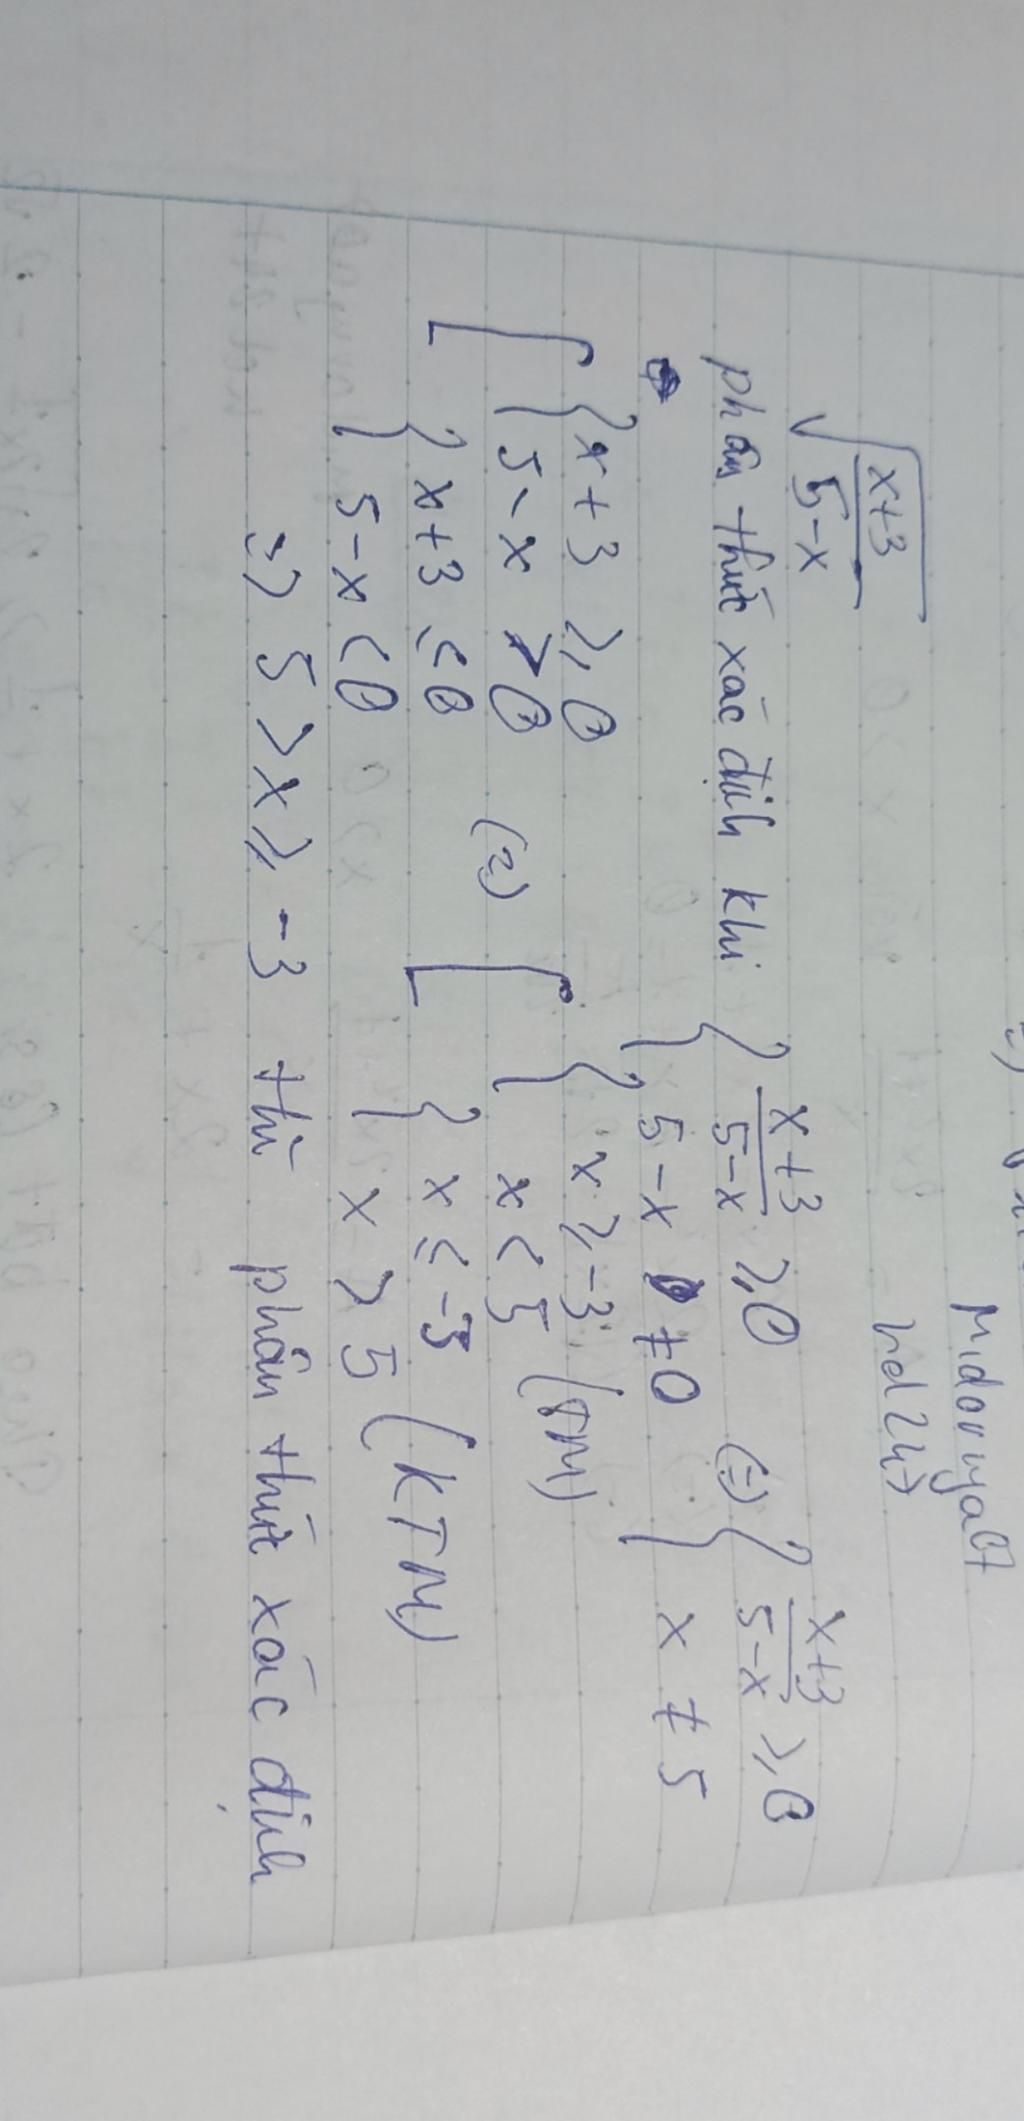 Midoriya07
hd247
√(x+3)/(5-x)
phân thức xác định khi { (x+3)/(5-x) ≥ 0 (=) { (x+3)/(5-x) ≥ 0
{ 5-x ≠ 0 { x ≠ 5
[ { x+3 ≥ 0 [ { x ≥ -3 (TM)
{ 5-x > 0 (=) { x < 5
{ x+3 ≤ 0 { x ≤ -3
{ 5-x < 0 { x > 5 (KTM)
=) 5 > x ≥ -3 thì phân thức xác định